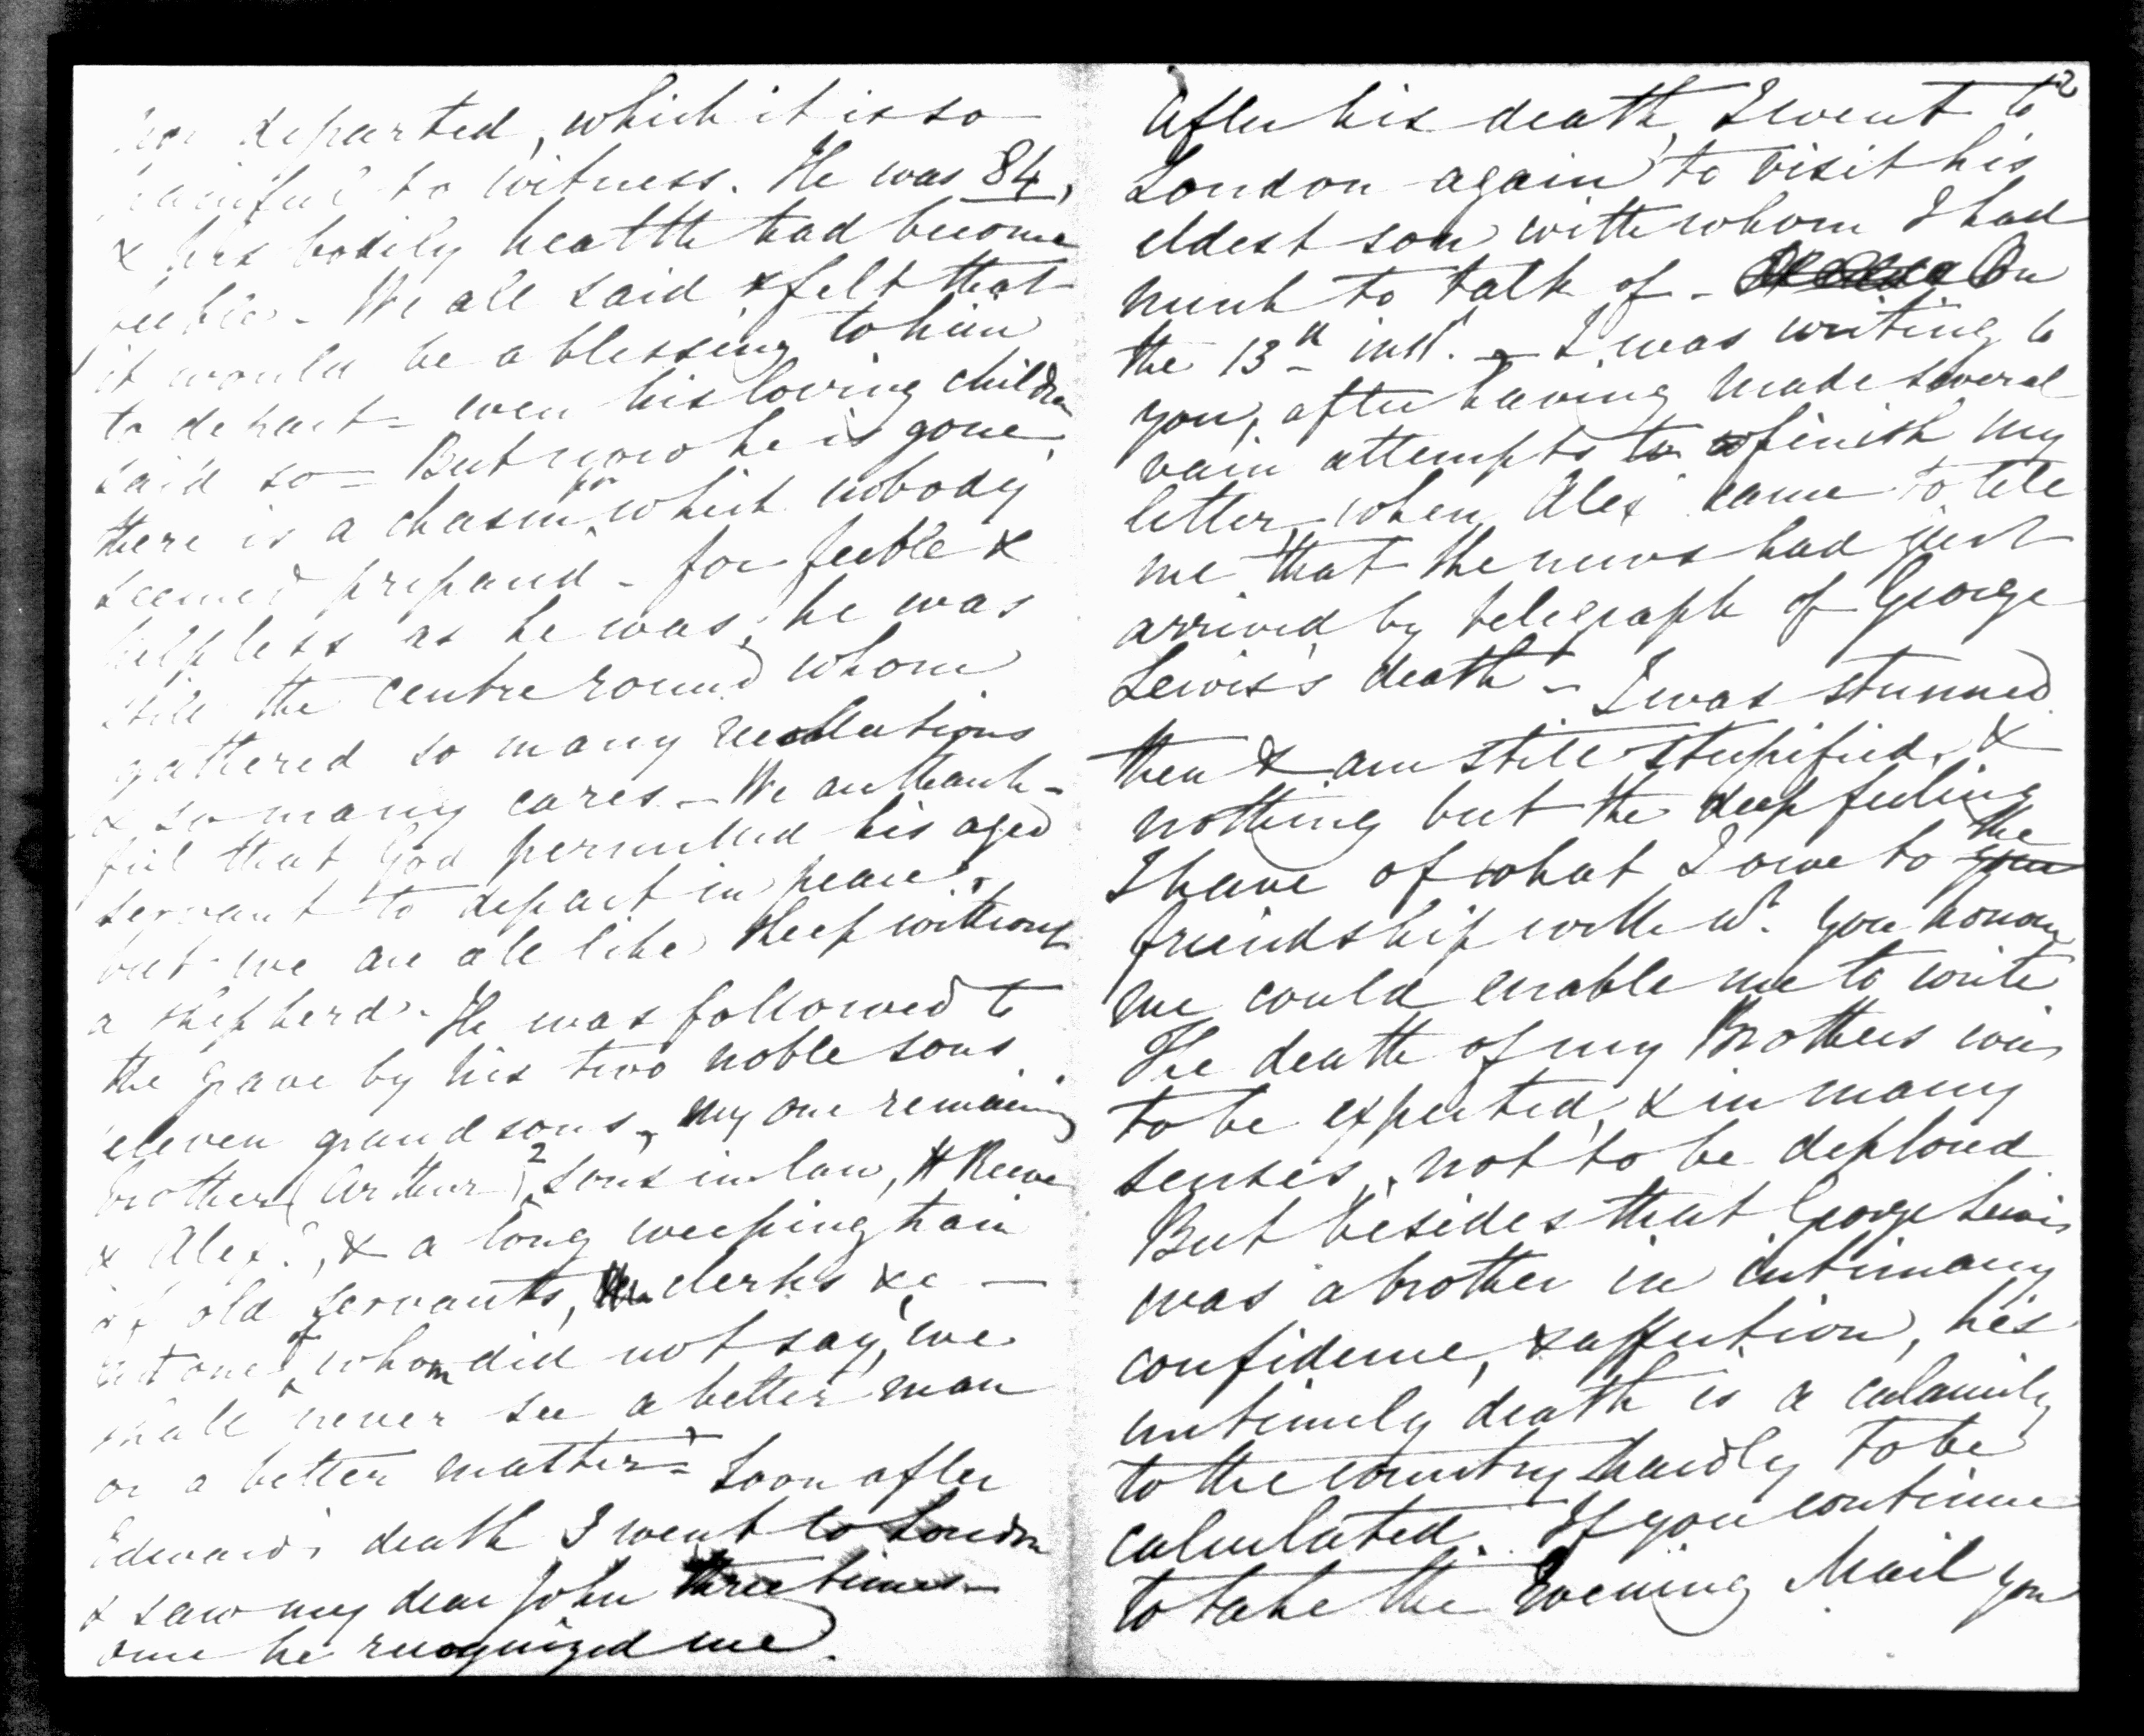 departed, which it is so
painful to witness. He was 84,
& his bodily health had become
feeble. - We all said & felt that
it would be a blessing to him
to depart - even his loving children
said so - But now he is gone,
there is a chasm for which nobody
seemed prepared - for feeble &
helpless as he was, he was
still the centre round whom
gathered so many recollections
& so many cares - We are thank-
ful that God permitted his aged
servant to depart in peace.
but we are all like sheep without
a shepherd. He was followed to
the grave by his two noble sons
eleven grandsons, my one remaining
brother (Arthur) 2 sons in law, H Reeve
& Alexr., & a long weeping train
of old servants, clerks &c —
not one of whom did not say, we
shall never see a better man
or a better master - Soon after
Edward's death I went to London
& saw my dear John three times -
once he recognized me.
2
After his death, I went to
London again to visit his
eldest son with whom I had
much to talk of - On
the 13th inst. - I was writing to
you, after having made several
vain attempts to finish my
letter, when Alexr came to tell
me that the news had just
arrived by telegraph of George
Lewis's death - I was stunned
then & am still stupified, &
nothing but the deep feeling
I have of what I owe to the
friendship with wh. you honour
me could enable me to write
The death of my Brothers was
to be expected, & in many
senses, not to be deplored
But besides that George Lewis
was a brother in intimacy
confidence, & affection, his
untimely death is a calamity
to the country hardly to be
calculated. If you continue
to take the Evening Mail you